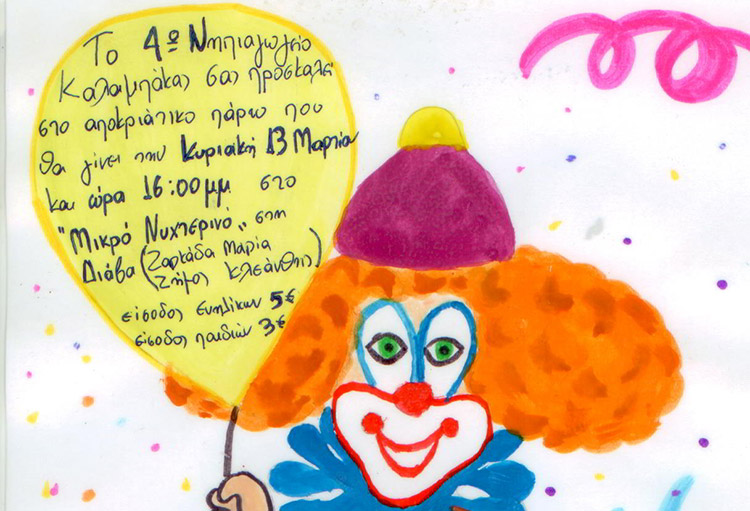 Το 4ο Νηπιαγωγείο
Καλαμπάκας σας προσκαλεί
στο αποκριάτικο πάρτυ που
θα γίνει την Κυριακή 13 Μαρτίου
και ώρα 16:00μμ στο
"Μικρό Νυχτερινό„ στη
Διάβα (Ζαρκάδα Μαρία
Ζήμος Κλεάνθης)
είσοδος Ενηλίκων 5€
είσοδος παιδιών 3€